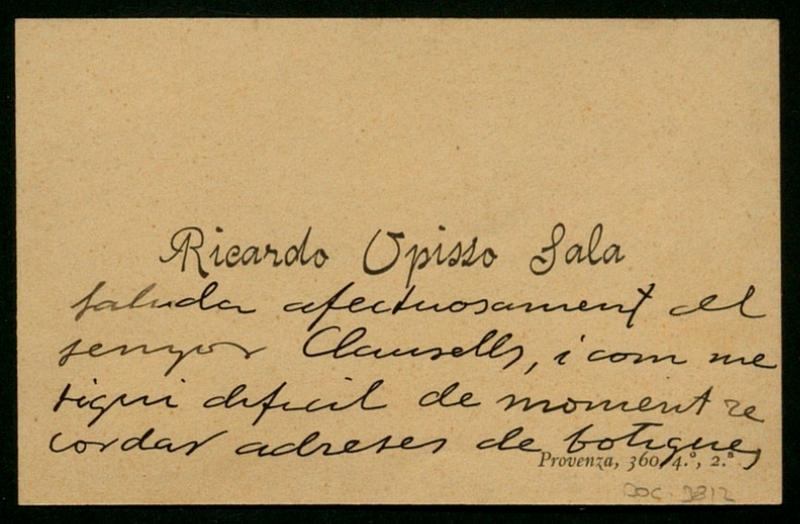 Ricardo Opisso Sala
saluda afectuosament al
senyor Clausells, i com me
sigui dificil de moment re
cordar adreses de botigues
Provenza, 360, 4.º, 2.ª
DOC. 3312